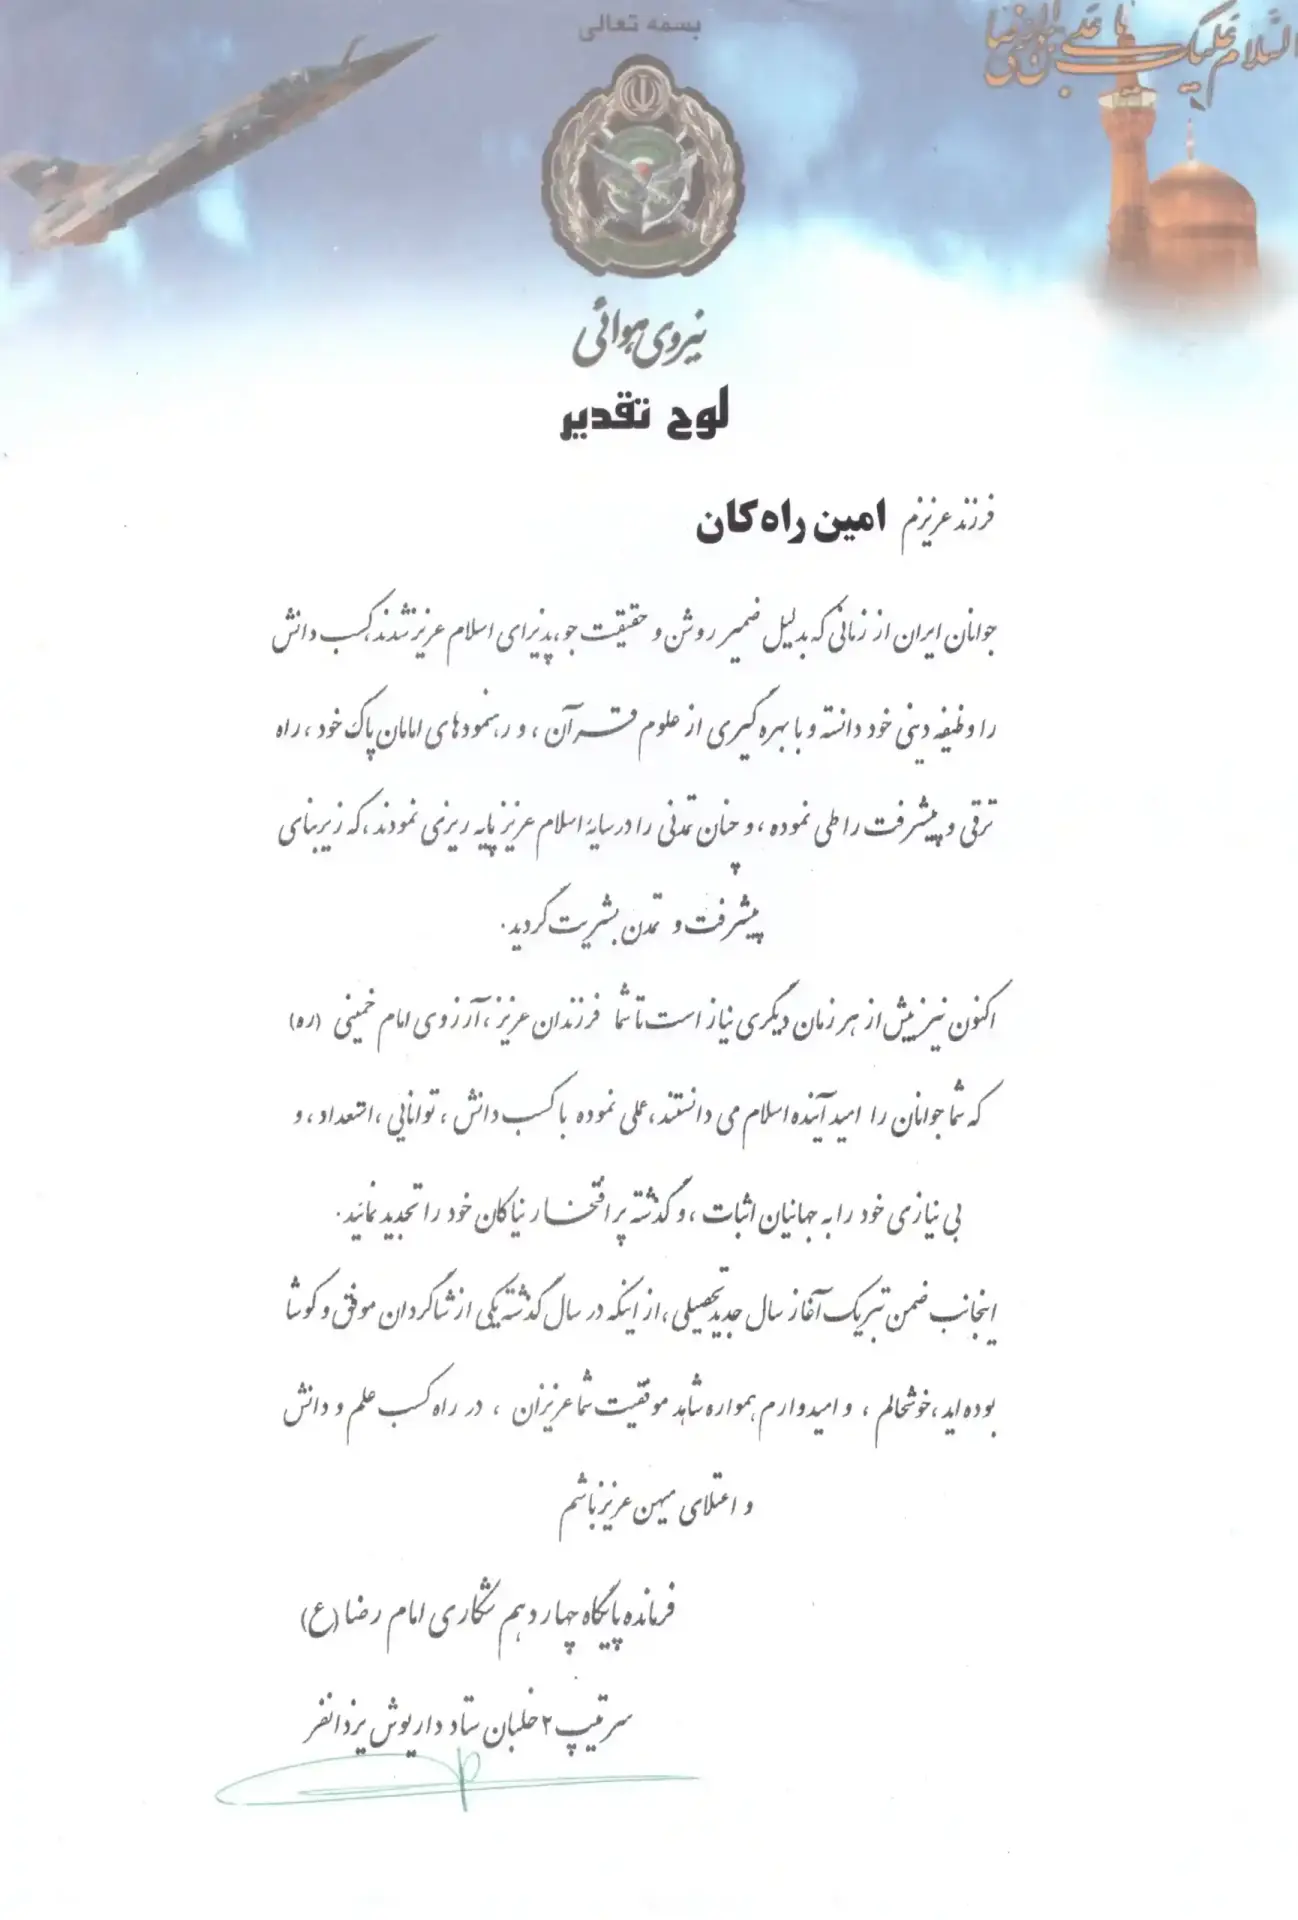 بسمه تعالی
السلام علیک یا علی بن موسی الرضا
نیروی هوائی
لوح تقدیر
فرزند عزیزم امین راه کان
جوانان ایران از زمانی که بدلیل ضمیر روشن و حقیقت جو، پذیرای اسلام عزیز شدند، کسب دانش
را وظیفه دینی خود دانسته و با بهره گیری از علوم قرآن ، و رهنمودهای امامان پاک خود ، راه
ترقی و پیشرفت را طی نموده ، و چنان تمدنی را در سایۀ اسلام عزیز پایه ریزی نمودند ، که زیربنای
پیشرفت و تمدن بشریت گردید .
اکنون نیز بیش از هر زمان دیگری نیاز است تا شما فرزندان عزیز ، آرزوی امام خمینی (ره)
که شما جوانان را امید آینده اسلام می دانستند ، عملی نموده با کسب دانش ، توانایی ، استعداد ، و
بی نیازی خود را به جهانیان اثبات ، و گذشته پر افتخار نیاکان خود را تجدید نمائید .
اینجانب ضمن تبریک آغاز سال جدید تحصیلی ، از اینکه در سال گذشته یکی از شاگردان موفق و کوشا
بوده اید ، خوشحالم ، و امیدوارم همواره شاهد موفقیت شما عزیزان ، در راه کسب علم و دانش
و اعتلای میهن عزیز باشم
فرمانده پایگاه چهاردهم شکاری امام رضا (ع)
سرتیپ ۲ خلبان ستاد داریوش یزدانفر